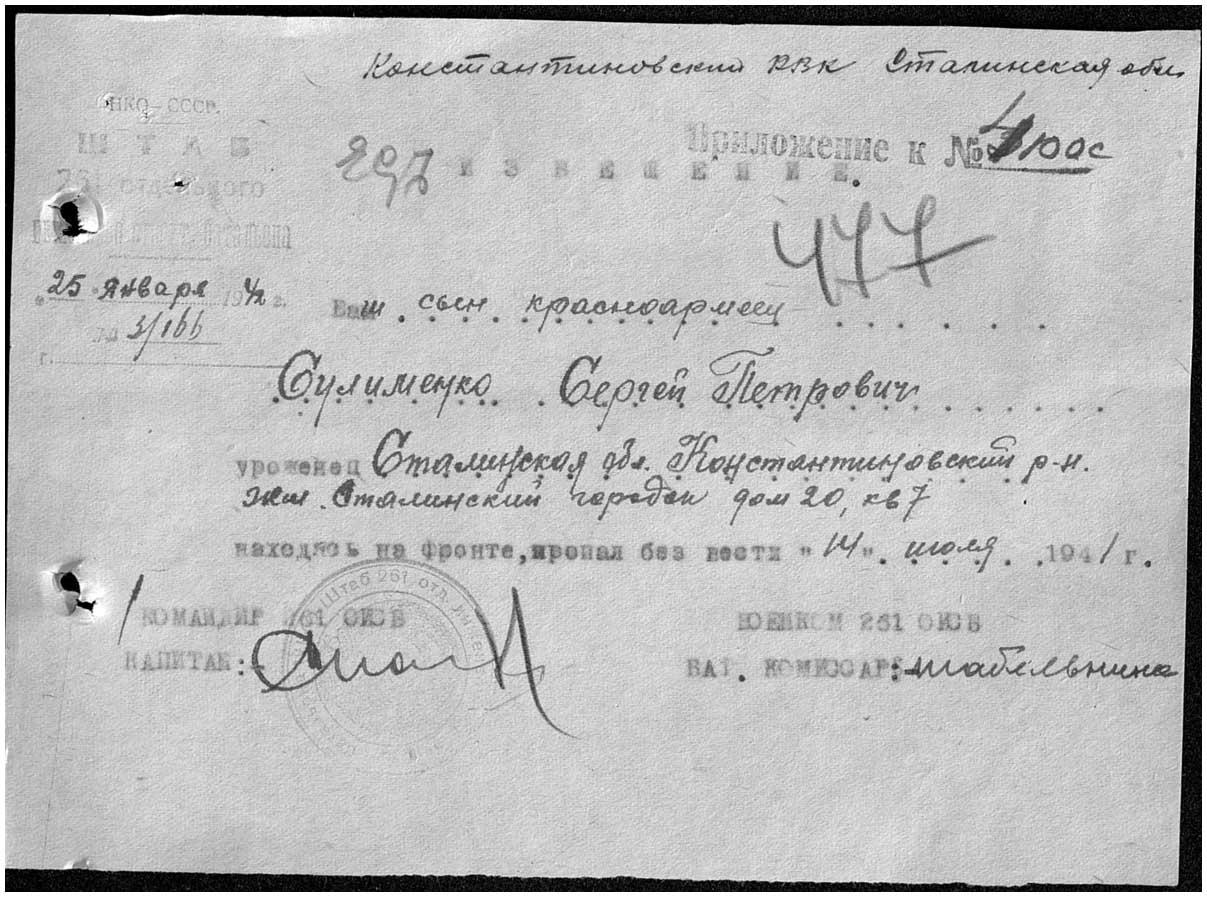 Константиновский РВК Сталинская обл.
НКО-СССР.
ШТАБ
261 отдельного
батальона
"25" Января 1942 г.
№ 3/166
г.
Приложение к № 4100с
ИЗВЕЩЕНИЕ.
477
Ваш сын красноармеец
Сулименко Сергей Петрович
уроженец Сталинская обл. Константиновский р-н.
жил. Сталинский городок дом 20, кв 7
находясь на фронте, пропал без вести "14" июля 1941 г.
КОМАНДИР 261 ОИСБ
КАПИТАН:
ВОЕНКОМ 261 ОИСБ
БАТ. КОМИССАР:
Штаб 261 отд.